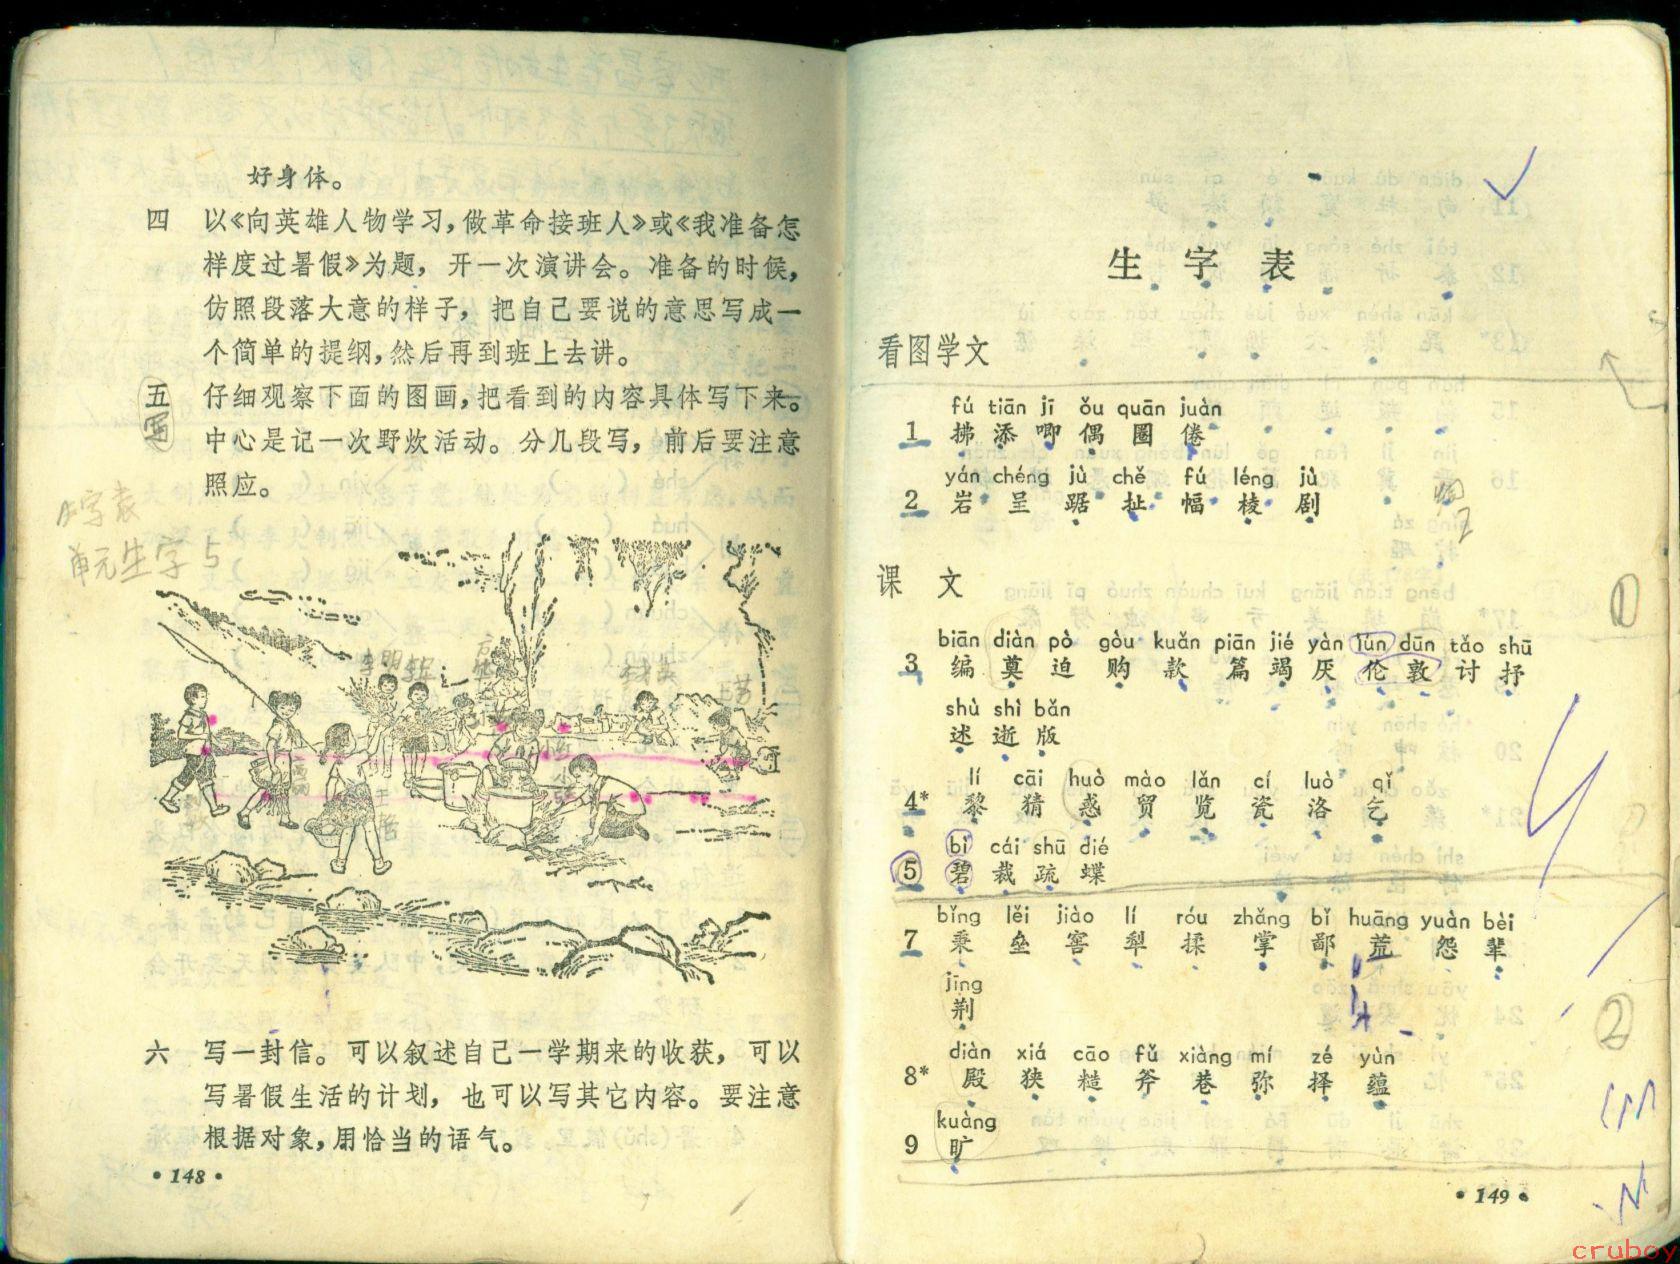 好身体。
四 以《向英雄人物学习,做革命接班人》或《我准备怎
样度过暑假》为题，开一次演讲会。准备的时候，
仿照段落大意的样子，把自己要说的意思写成一
个简单的提纲,然后再到班上去讲。
五 仔细观察下面的图画,把看到的内容具体写下来。
中心是记一次野炊活动。分几段写，前后要注意
照应。
生字表
单元生字 5
李明
小红
六 写一封信。可以叙述自己一学期来的收获，可以
写暑假生活的计划，也可以写其它内容。要注意
根据对象,用恰当的语气。
·148·
生字表
看图学文
fú tiān jī ǒu quān juàn
1 拂 添 唧 偶 圈 倦
yán chéng jù chě fú léng jù
2 岩 呈 踞 扯 幅 棱 剧
课文
biān diàn pò gòu kuǎn piān jié yàn lún dūn tǎo shū
3 编 奠 迫 购 款 篇 竭 厌 伦 敦 讨 抒
shù shì bǎn
述 逝 版
lí cāi huò mào lǎn cí luò qǐ
4* 黎 猜 惑 贸 览 瓷 洛 乞
bì cái shū dié
5 碧 裁 疏 蝶
bǐng lěi jiào lí róu zhǎng bǐ huāng yuàn bèi
7 秉 垒 窖 犁 揉 掌 鄙 荒 怨 辈
jīng
荆
diàn xiá cāo fǔ xiàng mí zé yùn
8* 殿 狭 糙 斧 巷 弥 择 蕴
kuàng
9 旷
①
②
·149·
cruboy